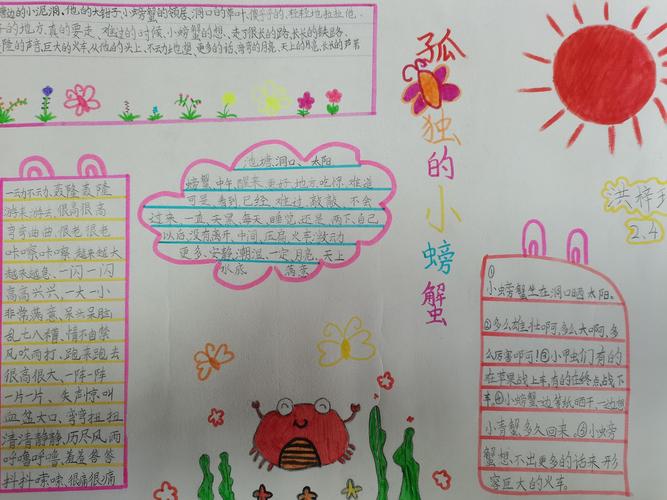 边的小泥洞、他、的大钳子、小螃蟹的邻居、洞口的草叶、傻乎乎的、轻轻地拉拉他、
的地方、真的要走、难过的时候、小螃蟹的想、走了很长的路、长长的铁路、
隆的声音、巨大的火车、从他的头上、不云动地想、更多的话、弯弯的月亮、天上的月亮、长长的声笛
孤独的小螃蟹
洪梓
2.4
池塘、洞口、太阳
螃蟹、中午、醒来、更好、地方、吃惊、难道
可是、看到、已经、难过、敲敲、不会
过来、一直、天黑、每天、睡觉、还是、两下、自己
以后、没有、离开、中间、压扁、火车、
更多、安静、潮湿、一定、月亮、天上
水底 清亮
一动不动、轰隆轰隆
游来游去、很高很高
弯弯曲曲、很老很老
咔嚓咔嚓、越来越大
越来越急、一闪一闪
高高兴兴、一大一小
非常满意、呆头呆脑
乱七八糟、情不由禁
风吹雨打、跑来跑去
很高很大、一阵一阵
一片一片、失声惊叫
血盆大口、弯弯扭扭
清清静静、历尽风雨
呼噜呼噜、羞羞答答
抖抖嗦嗦、很痛很痛
①
小螃蟹坐在洞口晒太阳。
②多么雄壮啊,多么大啊,多
么厉害啊!③小甲虫们有的
在苹果战上车,有的在终点战下
车。④小螃蟹边等纸晒干,一边想
小青蟹多久回来。⑤小螃
蟹想不出更多的话来形
容巨大的火车。